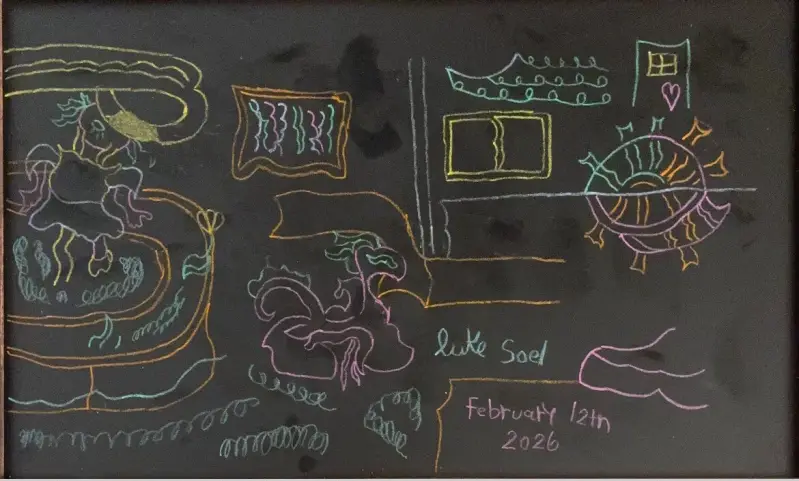 luke Soel
February 12th
2026